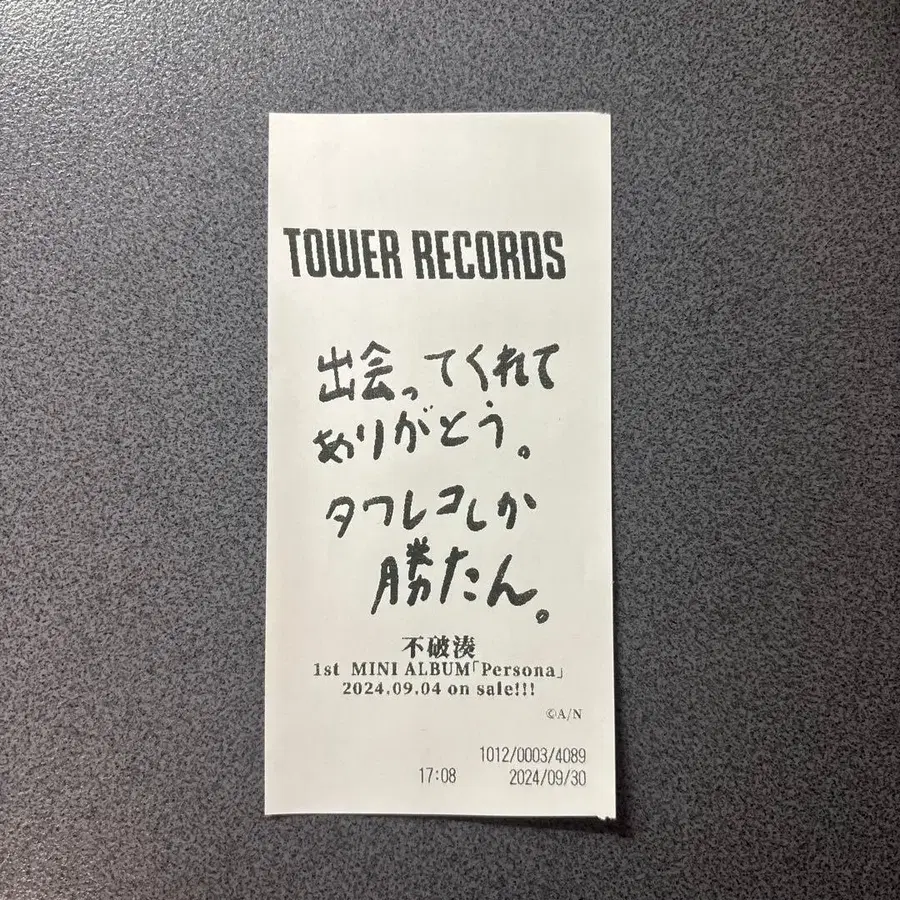 TOWER RECORDS
出会ってくれて
ありがとう。
タワレコしか
勝たん。
不破湊
1st MINI ALBUM「Persona」
2024.09.04 on sale!!!
©A/N
1012/0003/4089
17:08 2024/09/30